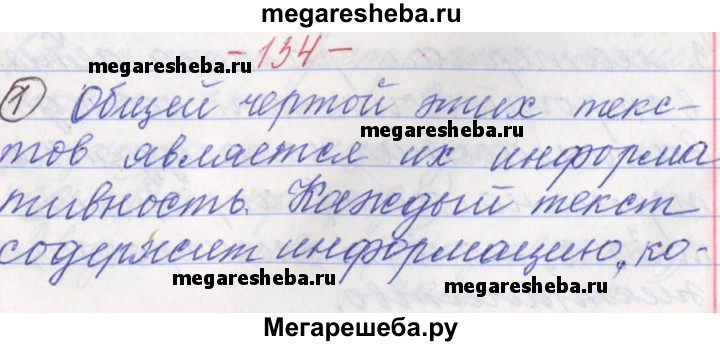 megaresheba.ru
- 134 -
megaresheba.ru
1 Общей чертой этих текс-
megaresheba.ru
тов является их информа
тивность. Каждый текст
содержит информацию, ко-
megaresheba.ru
Мегарешеба.ру